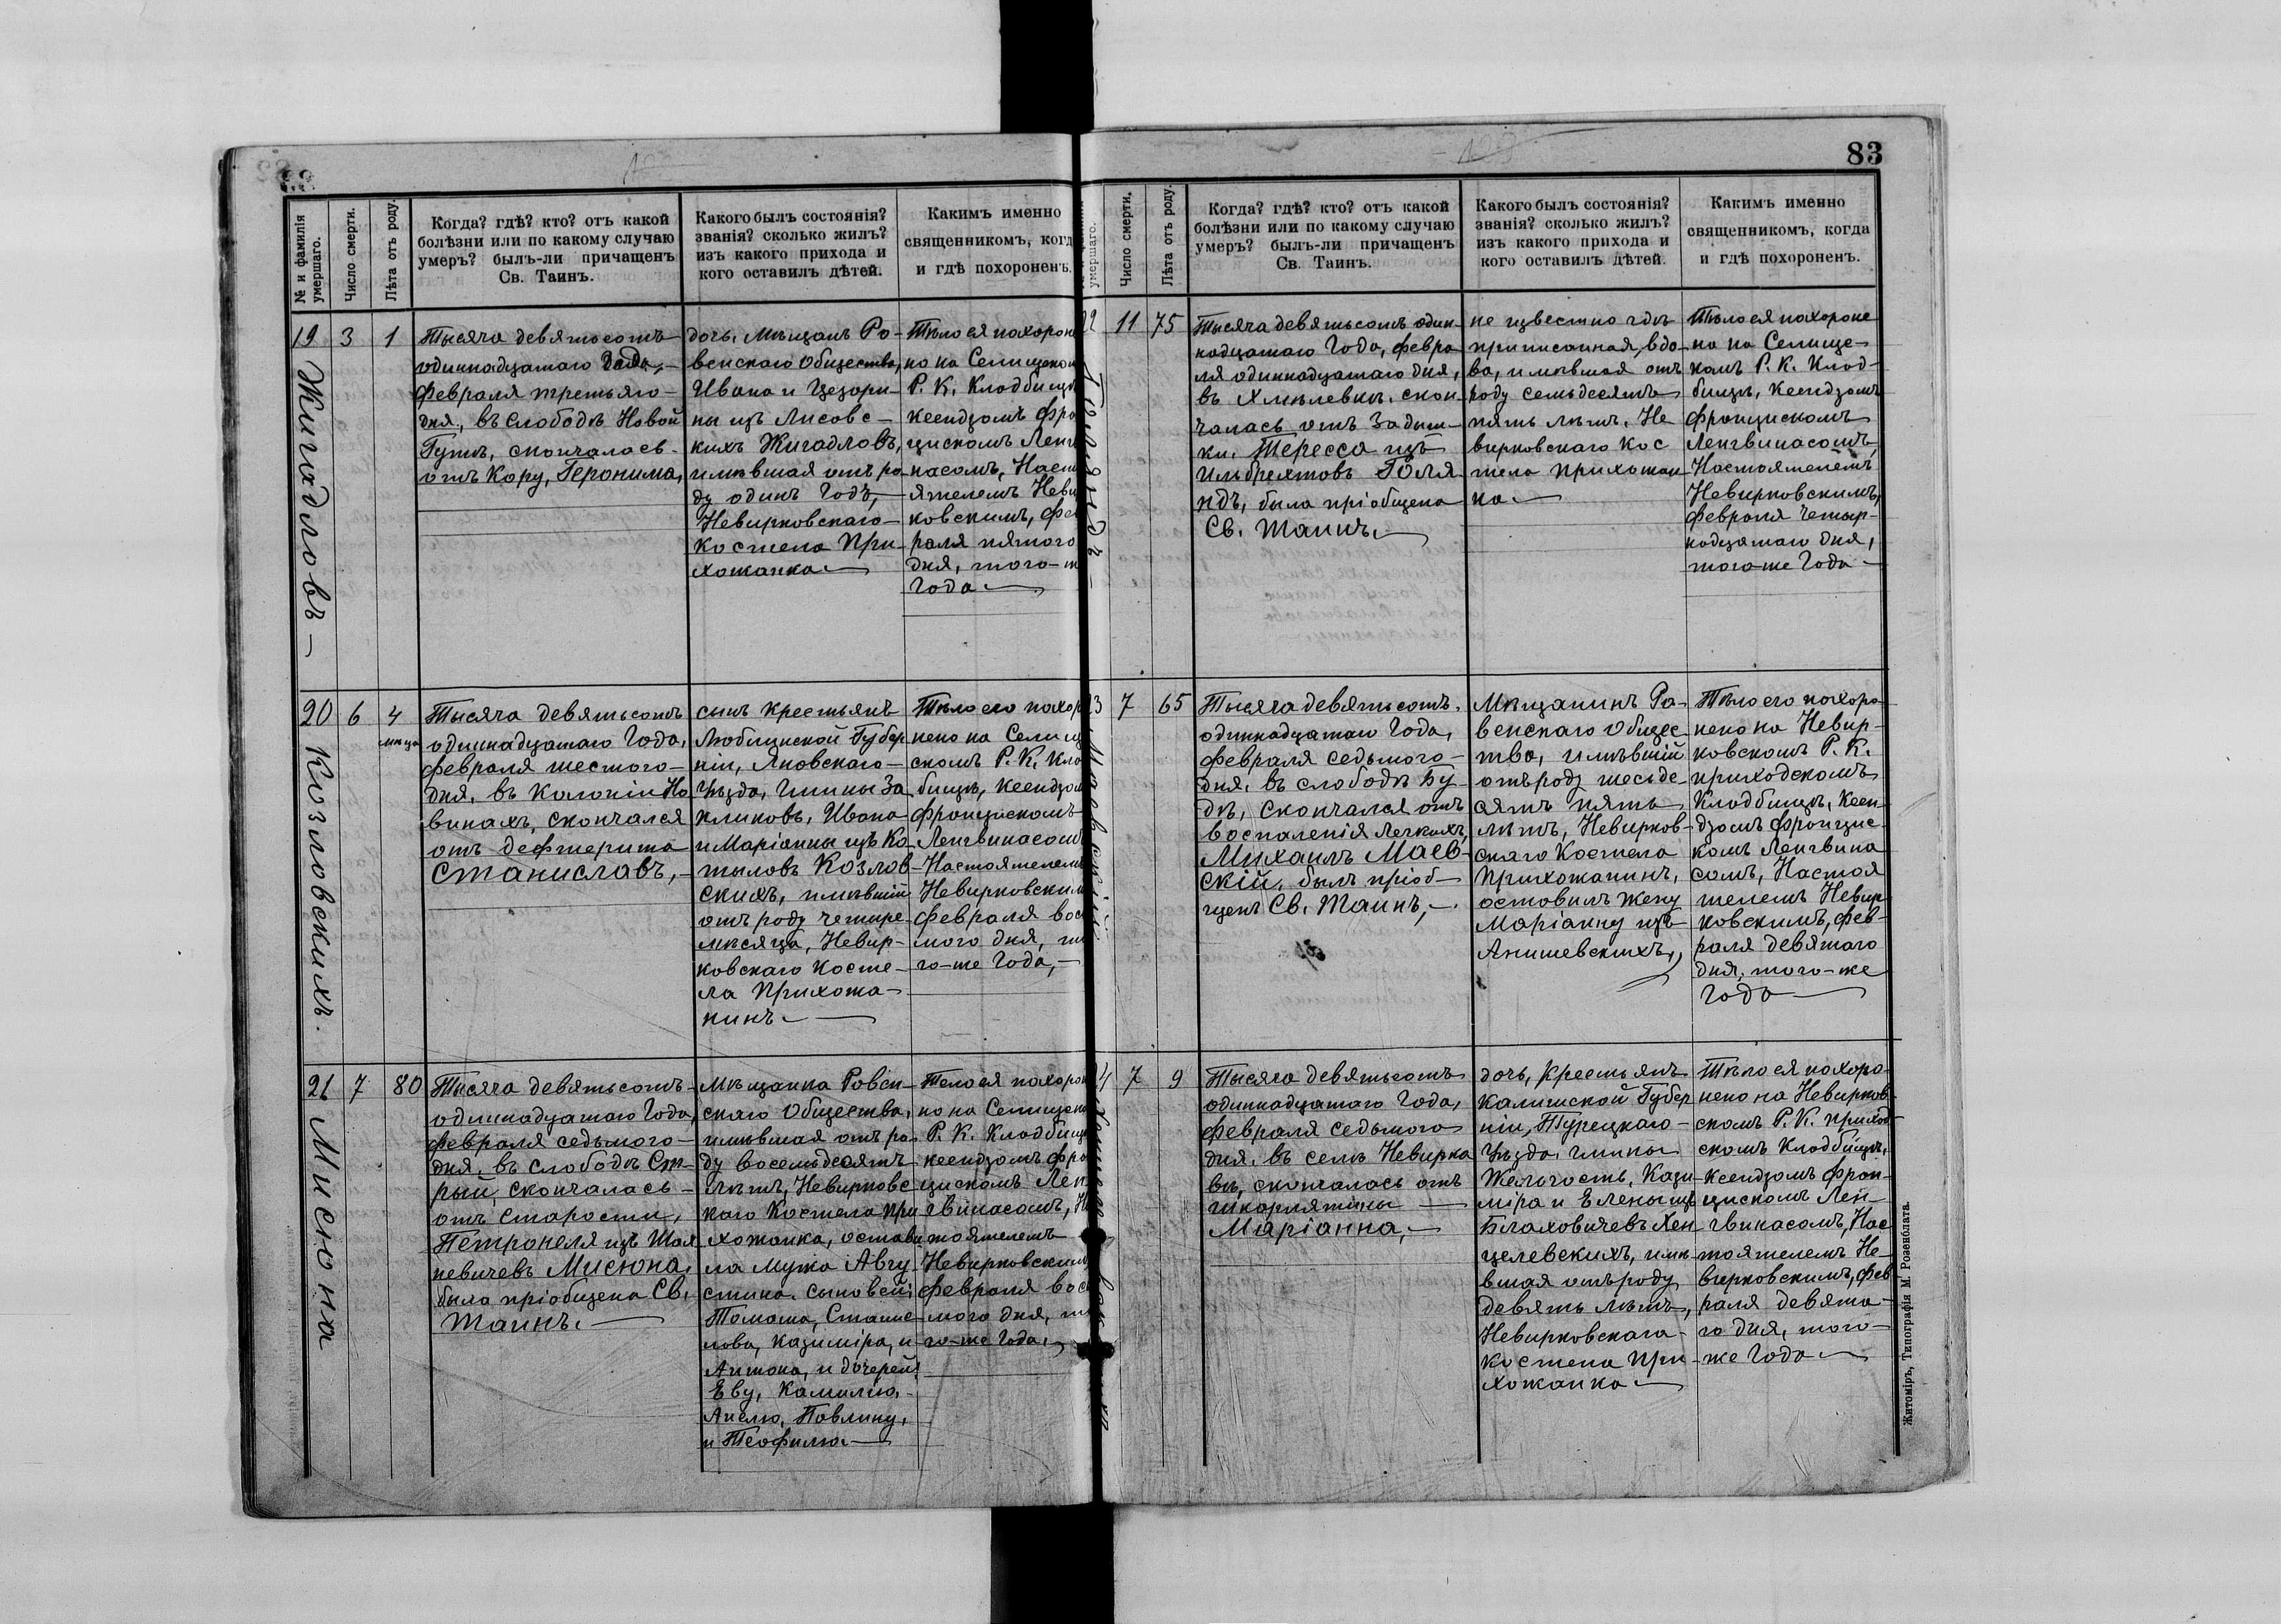 83
№ и фамилія умершаго.
Число смерти.
Лѣта отъ роду.
Когда? гдѣ? кто? отъ какой
болѣзни или по какому случаю
умеръ? былъ-ли причащенъ
Св. Таинъ.
Какого былъ состоянія?
званія? сколько жилъ?
изъ какого прихода и
кого оставилъ дѣтей.
Каким​ъ именно
священникомъ, когд
и гдѣ похороненъ.
19
Жигадловъ
3
1
Тысяча девятьсотъ
одиннадцатаго Года,
Февраля третьяго
дня, въ слободѣ Новой
Гутѣ, скончалась
отъ Кору, Геронима,
дочь, мѣщанъ Ро-
венскаго Общества,
Ивана и Цезари-
ны изъ Лисовс-
кихъ Жигадловъ,
имѣвшая отъ ро-
ду одинъ Годъ,
Невирковскаго
костела При-
хожанка
Тѣло ея похороне
но на Селищеком
Р. К. Кладбищѣ
ксендзомъ Фра
цискомъ Ленг
насомъ, Наст
ятелемъ Неви
ковскимъ, Фев
раля пятого
дня, того-ж
Года
20
Козловскихъ.
6
4
мѣца
Тысяча девятьсотъ
одиннадцатаго Года,
Февраля шестого
дня, въ Колоніи Но
винахъ, скончался
отъ дефтерита
Станиславъ,
сынъ крестьянъ
Люблинской Губер
ніи, Яновскаго
Уѣзда, Гмины За
клиновъ, Ивана
и Маріанны изъ Ко
тыловъ Козлов
скихъ, имѣвшій
отъ роду четыре
мѣсяца, Невир-
ковскаго Косте-
ла Прихожа-
нинъ
Тѣло его похор
нено на Селищ
скомъ Р. К. Кла
бищѣ, Ксендзом
Францискомъ
Ленгвинасомъ
Настоятелем
Невирковским
Февраля вос
мого дня, т
го-же Года,
21
Мисюна
7
80
Тысяча девятьсотъ
одиннадцатаго Года,
Февраля седьмого
дня, въ слободѣ Ст-
рый, скончалась
отъ старости,
Петронеля изъ Шая
невичевъ Мисюна,
была пріобщена Св.
Таинъ.
Мѣщанка Ровен-
скаго Общества,
имѣвшая отъ ро
ду восемьдесятъ
лѣтъ, Невирковс
каго Костела При
хожанка, остави
ла мужа Авгу
стина, сыновей:
Томаша, Станис
лова, Казиміра, и
Антона, и дочерей:
Еву, Камилію,
Анелю, Павлину,
и Теофилю
Тело ея похорон
но на Селищеко
Р. К. Кладбищ
ксендзомъ Фра
цискомъ Лен
гвинасомъ, Н
тоятелемъ
Невирковским
Февраля вос
мого дня, т
го-же Года,
умершаго.
Число смерти.
Лѣта отъ роду.
Когда? гдѣ? кто? отъ какой
болѣзни или по какому случаю
умеръ? былъ-ли причащенъ
Св. Таинъ.
Какого былъ состоянія?
званія? сколько жилъ?
изъ какого прихода и
кого оставилъ дѣтей.
Какимъ именно
священникомъ, когда
и гдѣ похороненъ.
11
75
Тысяча девятьсотъ один-
надцатаго Года, Февра
ля одиннадцатаго дня,
въ Хмѣлевкѣ, скон
чалась отъ Задыш-
ки, Тересса изъ
Ильбрехтовъ Голя
ндъ, была пріобщена
Св. Таинъ.
не известно гдѣ
приписанная, вдо-
ва, имѣвшая отъ
роду семьдесятъ
пять лѣтъ, Не
вирковскаго Кос
тела прихожан
ка
Тѣло ея похороне
на на Селище-
комъ Р. К. Клад-
бищѣ, Ксендзомъ
Францискомъ
Ленгвинасомъ,
Настоятелемъ
Невирковскимъ,
Февраля четыр-
надцатаго дня,
того-же Года
7
65
Тысяча девятьсотъ
одиннадцатаго Года,
Февраля седьмого
дня, въ слободѣ Бу-
дѣ, скончался отъ
воспаленія легкихъ,
Михаилъ Маев-
скій, былъ пріоб-
щенъ Св. Таинъ,
Мѣщанинъ Ра-
венскаго Общес-
тва, имѣвшій
отъ роду шесьде-
сятъ пять
лѣтъ, Невирков-
скаго Костела
Прихожанинъ,
оставилъ жену
Маріанну изъ
Анишевскихъ,
Тѣло его похоро-
нено на Невир-
ковскомъ Р. К.
приходскомъ
Кладбищѣ, Ксен-
дзомъ Францис-
комъ Ленгвина
сомъ, Настоя
телемъ Невир-
ковскимъ, Фев-
раля девятаго
дня, того-же
Года
7
9
Тысяча девятьсотъ
одиннадцатаго Года,
Февраля седьмого
дня, въ селѣ Невирко
вѣ, скончалась отъ
шкарлятины
Маріанна,
дочь, Крестьянъ
Калишской Губер
ніи, Турецкаго
Уѣзда, гмины
Жельгость, Кази-
міра и Елены изъ
Блаховичевъ Хен
целевскихъ, имѣ-
вшая отъ роду
девять лѣтъ,
Невирковскага
костела При-
хожанка
Тѣло ея похоро-
нено на Невирков-
скомъ Р. К. приход
скомъ Кладбищѣ,
Ксендзомъ Фран-
цискомъ Лен-
гвинасомъ, Нас
тоятелемъ Не-
вирковскимъ, Фев
раля девята-
го дня, того-
же Года
Житоміръ, Типографія М. Розенблата.